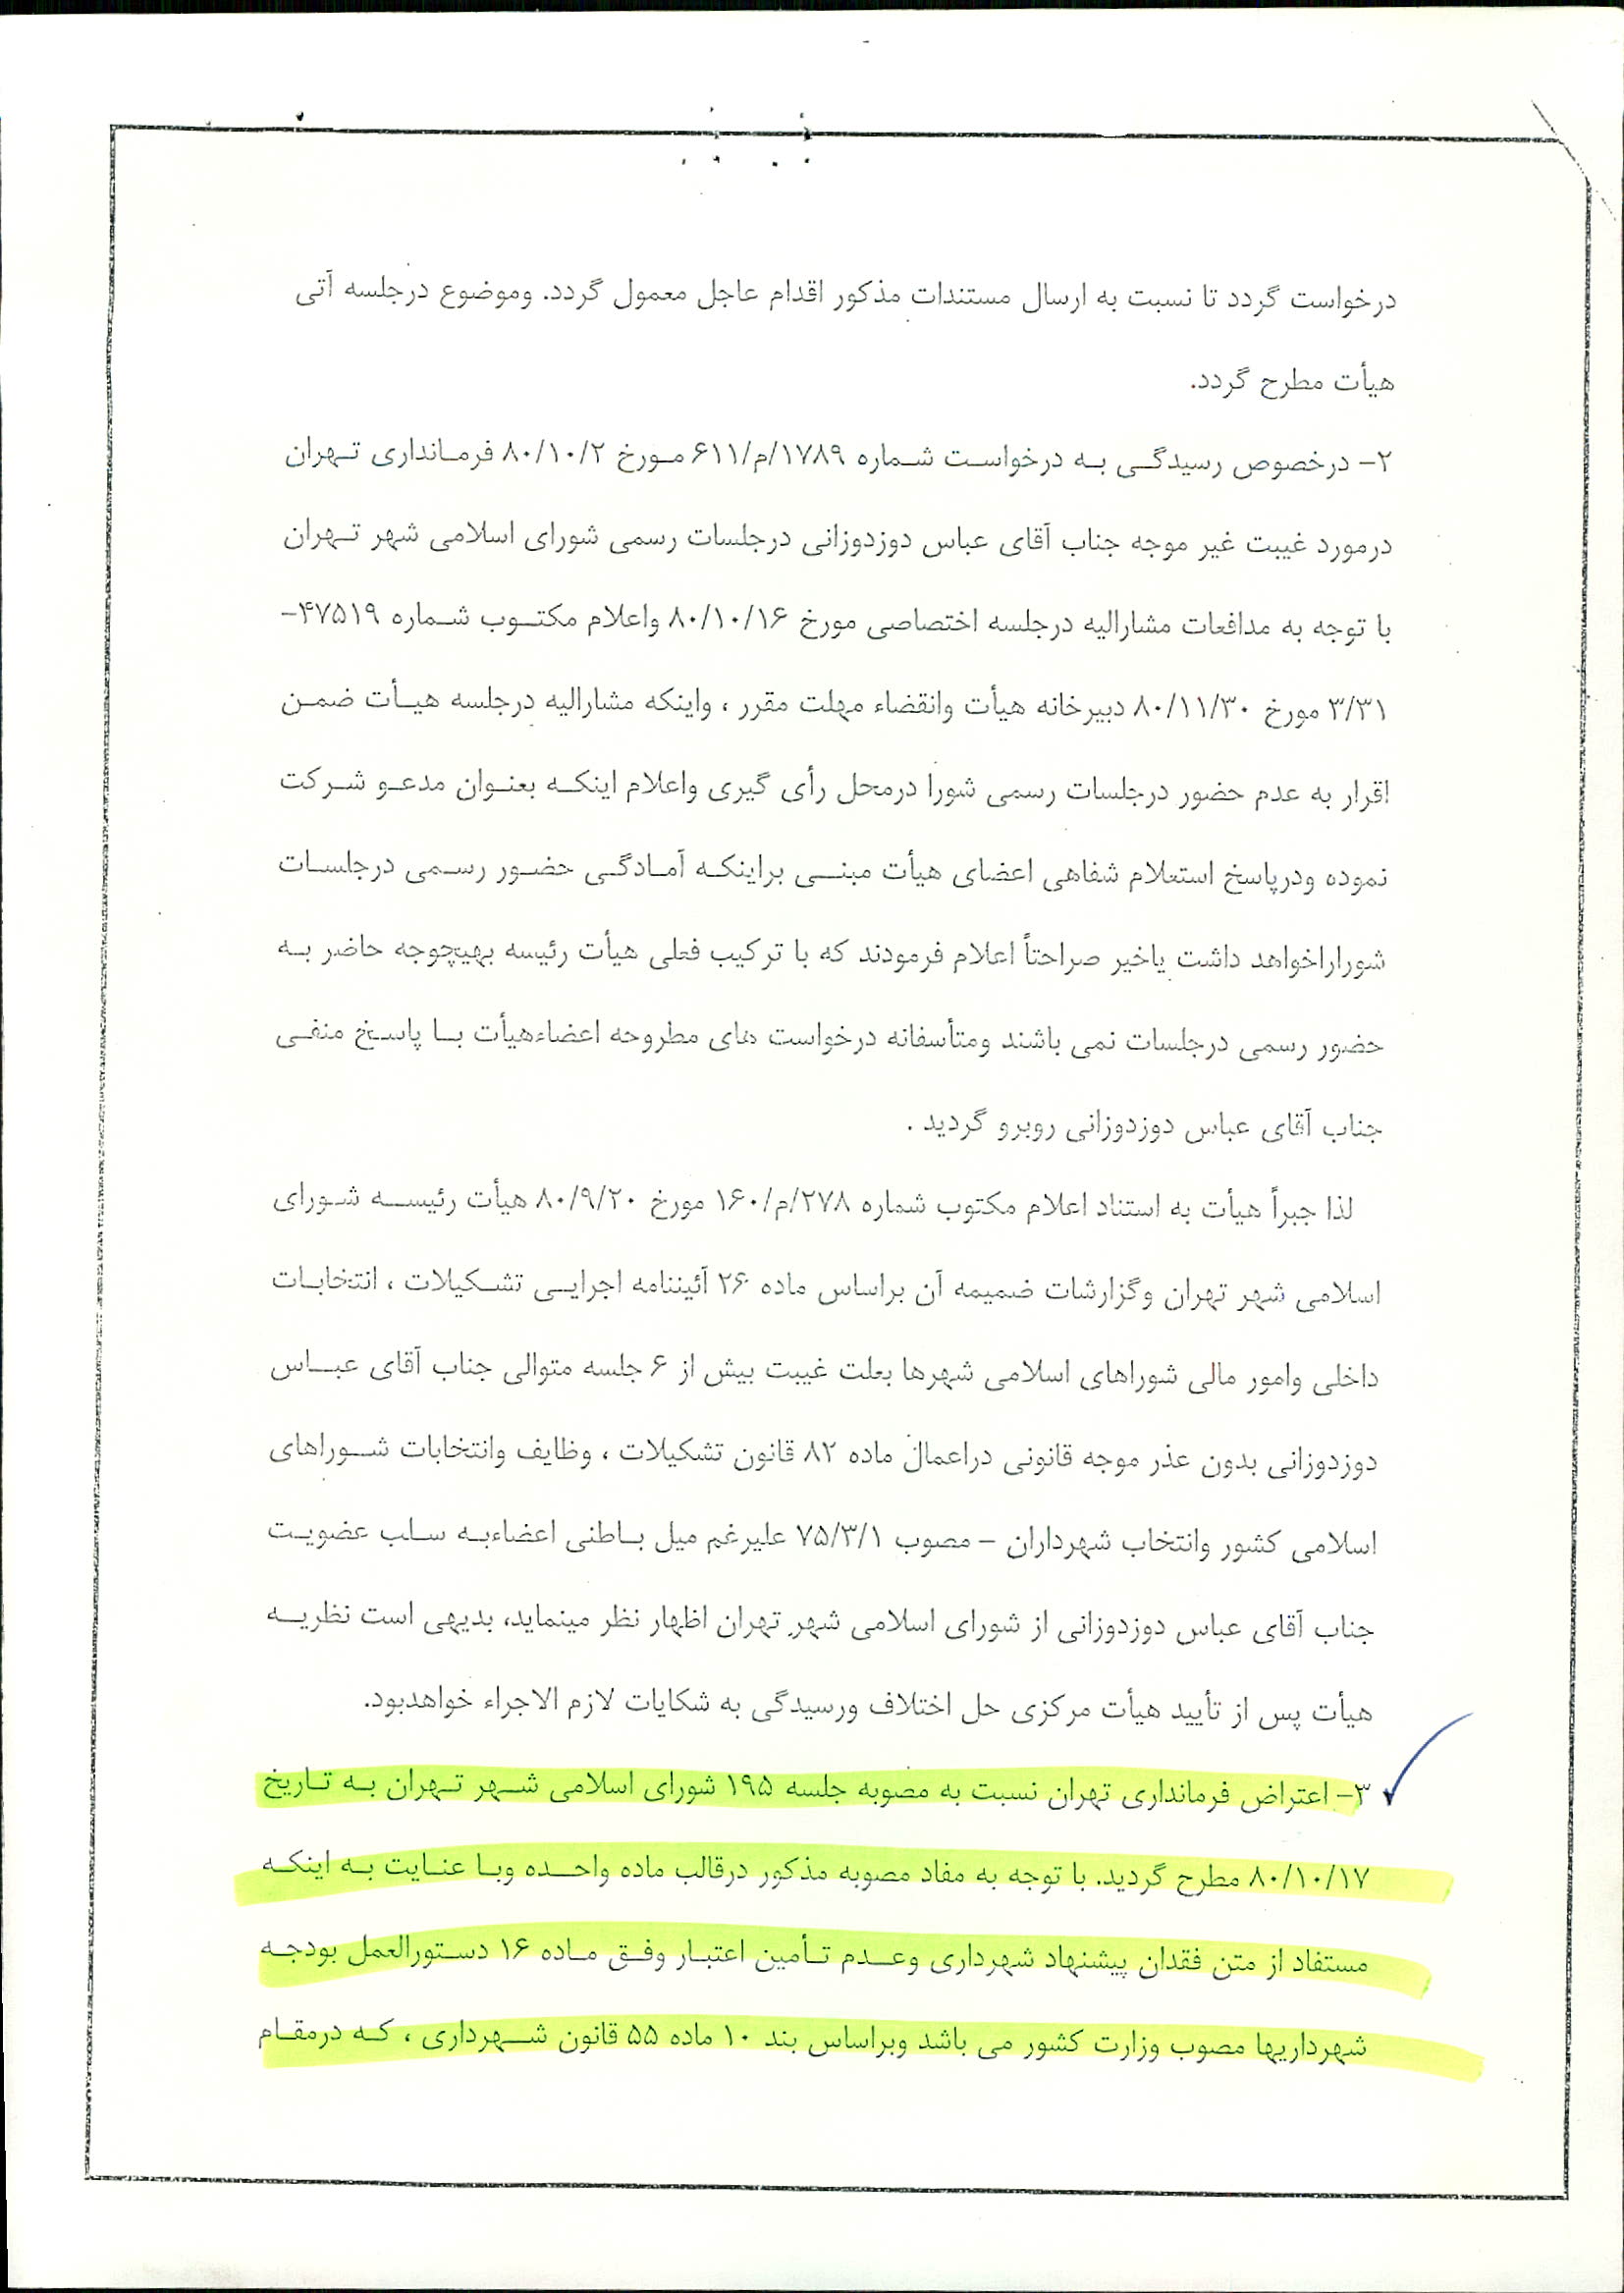 درخواست گردد تا نسبت به ارسال مستندات مذکور اقدام عاجل معمول گردد. وموضوع درجلسه آتی
هیأت مطرح گردد.
۲- درخصوص رسیدگی به درخواست شماره ۱۷۸۹/م/۶۱۱ مورخ ۸۰/۱۰/۲ فرمانداری تهران
درمورد غیبت غیر موجه جناب آقای عباس دوزدوزانی درجلسات رسمی شورای اسلامی شهر تهران
با توجه به مدافعات مشارالیه درجلسه اختصاصی مورخ ۸۰/۱۰/۱۶ واعلام مکتوب شماره ۴۷۵۱۹-
۳/۳۱ مورخ ۸۰/۱۱/۳۰ دبیرخانه هیأت وانقضاء مهلت مقرر ، واینکه مشارالیه درجلسه هیأت ضمن
اقرار به عدم حضور درجلسات رسمی شورا درمحل رأی گیری واعلام اینکه بعنوان مدعو شرکت
نموده ودرپاسخ استعلام شفاهی اعضای هیأت مبنی براینکه آمادگی حضور رسمی درجلسات
شوراراخواهد داشت یاخیر صراحتاً اعلام فرمودند که با ترکیب فعلی هیأت رئیسه بهیچوجه حاضر به
حضور رسمی درجلسات نمی باشند ومتأسفانه درخواست های مطروحه اعضاءهیأت با پاسخ منفی
جناب آقای عباس دوزدوزانی روبرو گردید .
لذا جبراً هیأت به استناد اعلام مکتوب شماره ۲۷۸/م/۱۶۰ مورخ ۸۰/۹/۲۰ هیأت رئیسه شورای
اسلامی شهر تهران وگزارشات ضمیمه آن براساس ماده ۲۶ آئیننامه اجرایی تشکیلات ، انتخابات
داخلی وامور مالی شوراهای اسلامی شهرها بعلت غیبت بیش از ۶ جلسه متوالی جناب آقای عباس
دوزدوزانی بدون عذر موجه قانونی دراعمال ماده ۸۲ قانون تشکیلات ، وظایف وانتخابات شوراهای
اسلامی کشور وانتخاب شهرداران – مصوب ۷۵/۳/۱ علیرغم میل باطنی اعضاءبه سلب عضویت
جناب آقای عباس دوزدوزانی از شورای اسلامی شهر تهران اظهار نظر مینماید، بدیهی است نظریه
هیأت پس از تأیید هیأت مرکزی حل اختلاف ورسیدگی به شکایات لازم الاجراء خواهدبود.
۳- اعتراض فرمانداری تهران نسبت به مصوبه جلسه ۱۹۵ شورای اسلامی شهر تهران به تاریخ
۸۰/۱۰/۱۷ مطرح گردید. با توجه به مفاد مصوبه مذکور درقالب ماده واحده وبا عنایت به اینکه
مستفاد از متن فقدان پیشنهاد شهرداری وعدم تأمین اعتبار وفق ماده ۱۶ دستورالعمل بودجه
شهرداریها مصوب وزارت کشور می باشد وبراساس بند ۱۰ ماده ۵۵ قانون شهرداری ، که درمقام